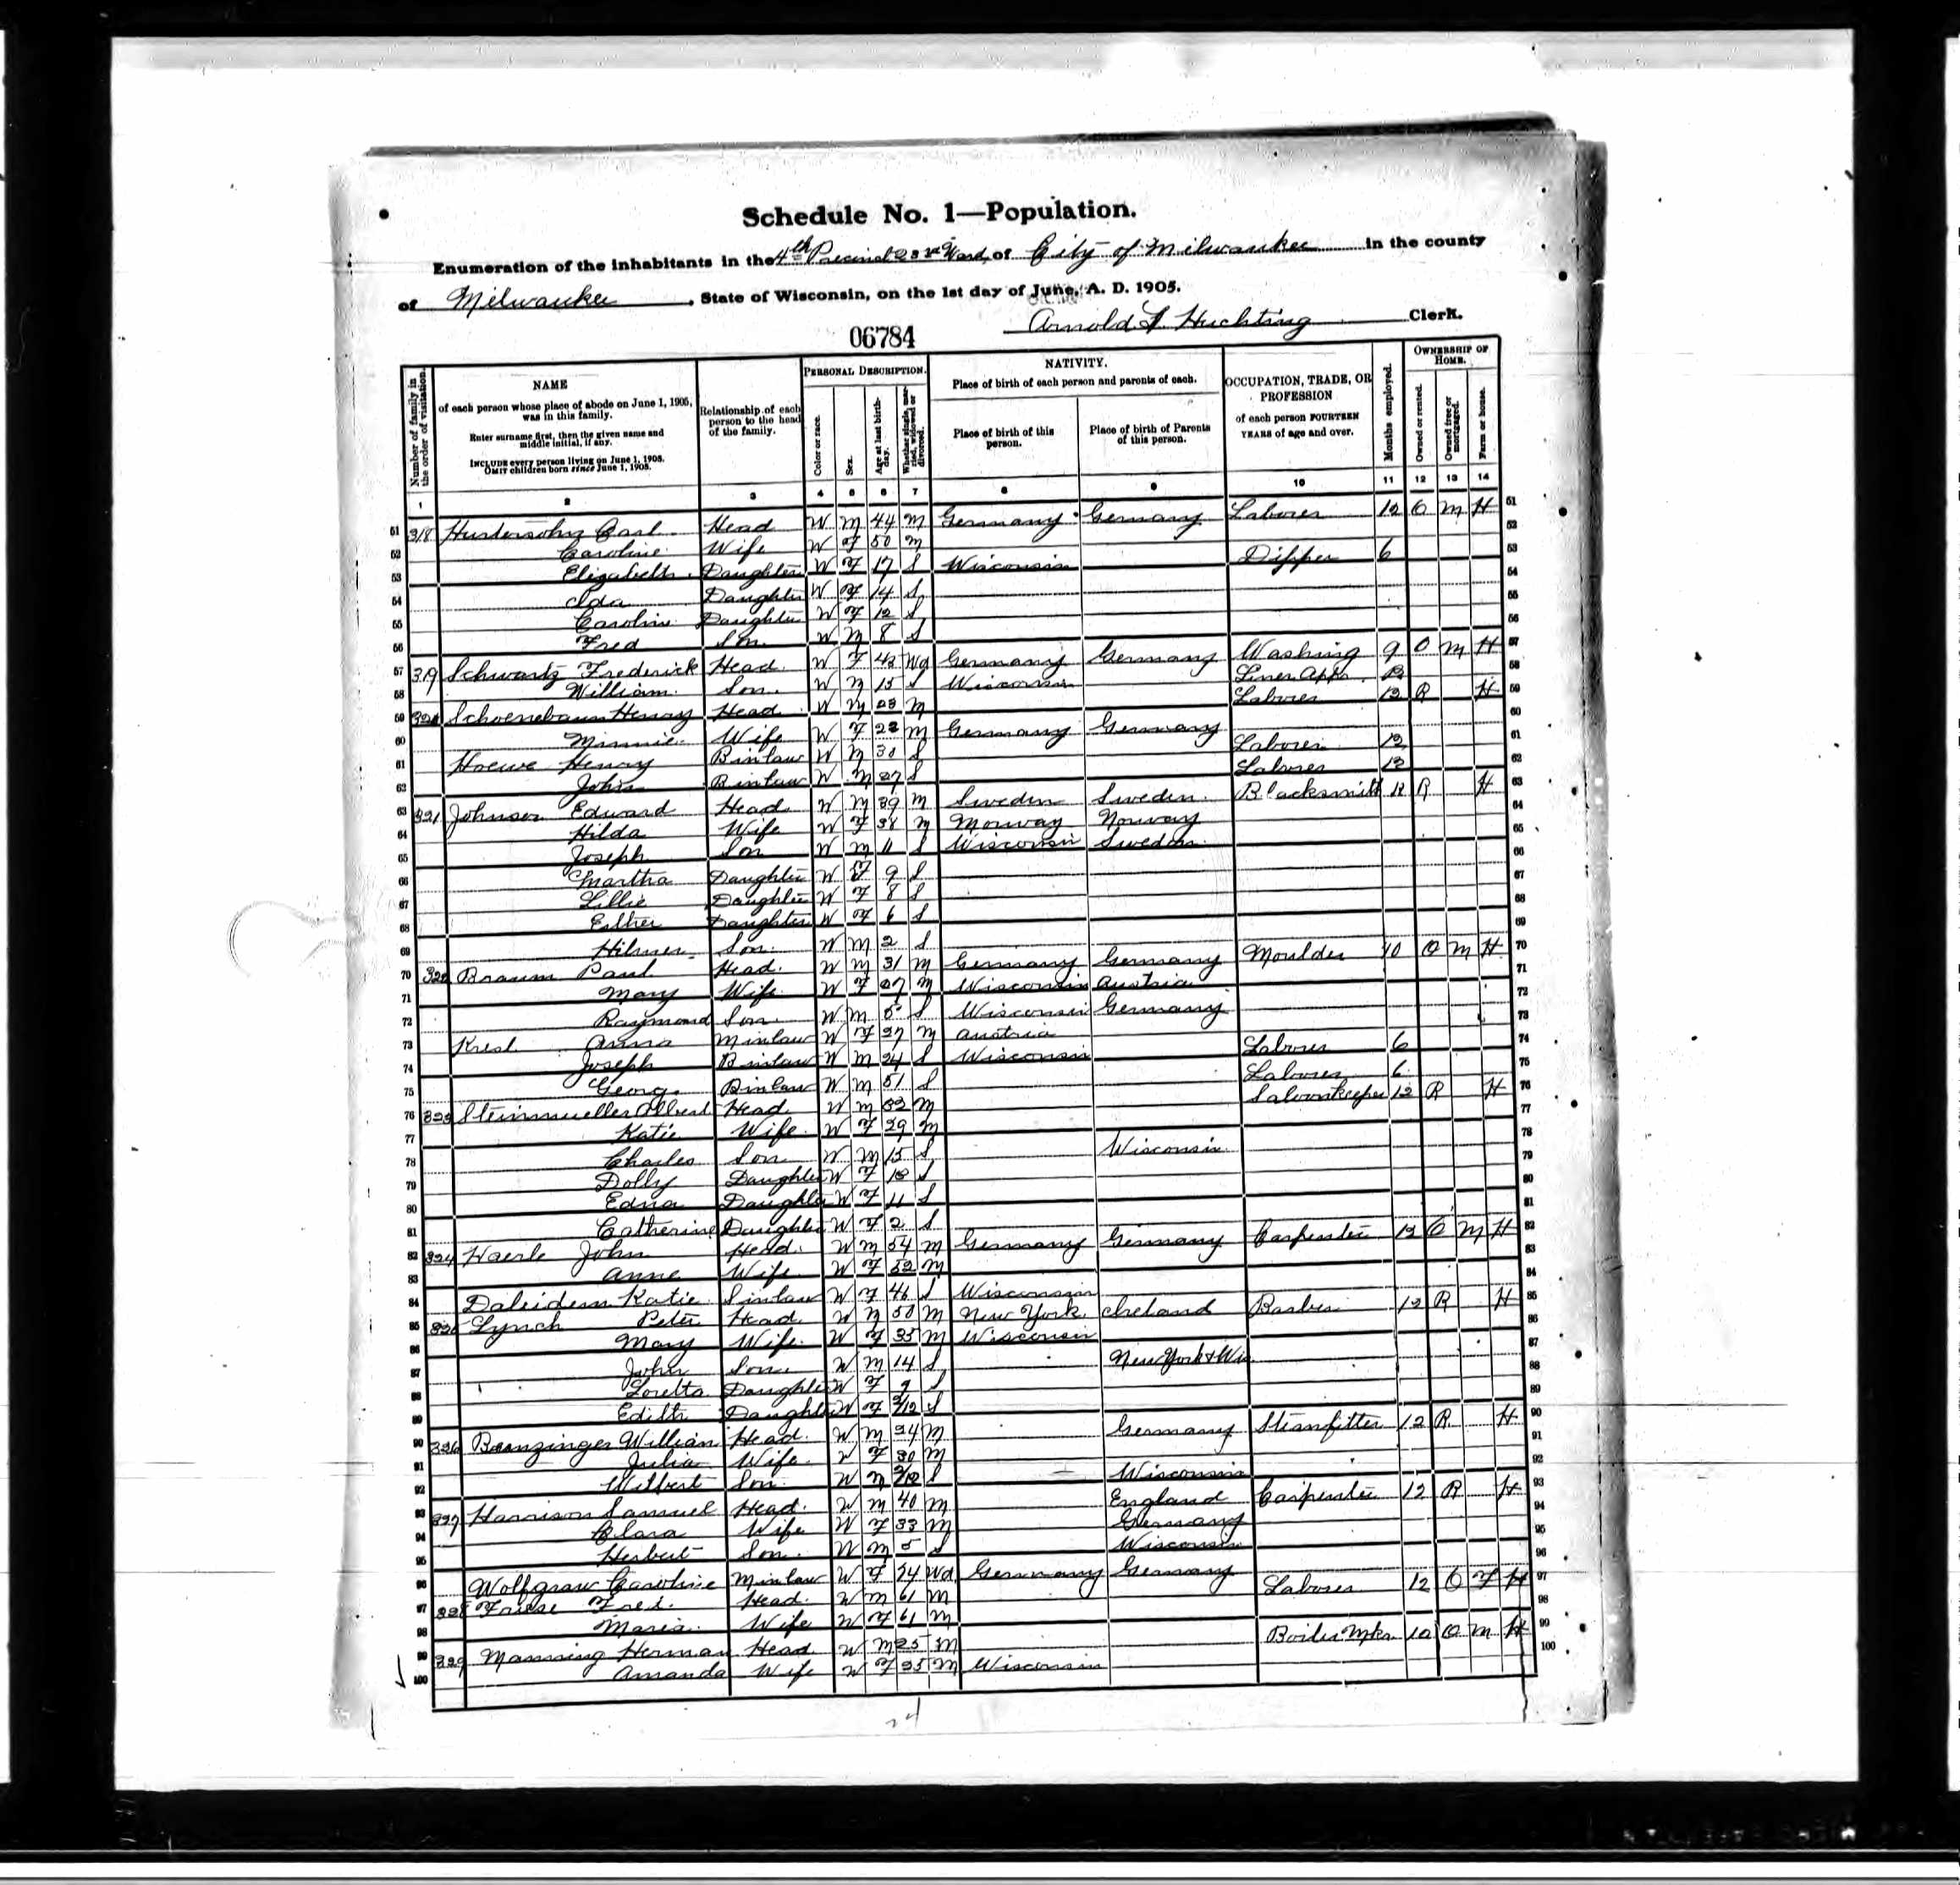 Schedule No. 1—Population.
Enumeration of the inhabitants in the 4th Precinct 23rd Ward, of City of Milwaukee in the county
of Milwaukee, State of Wisconsin, on the 1st day of June, A. D. 1905.
Arnold Huchting Clerk.
06784
Number of family in the order of visitation.
NAME
of each person whose place of abode on June 1, 1905, was in this family.
Enter surname first, then the given name and middle initial, if any.
INCLUDE every person living on June 1, 1905.
OMIT children born since June 1, 1905.
Relationship of each person to the head of the family.
PERSONAL DESCRIPTION.
Color or race.
Sex.
Age at last birthday.
Whether single, married, widowed or divorced.
NATIVITY.
Place of birth of each person and parents of each.
Place of birth of this person.
Place of birth of Parents of this person.
OCCUPATION, TRADE, OR PROFESSION
of each person FOURTEEN YEARS of age and over.
Months employed.
OWNERSHIP OF HOME.
Owned or rented.
Owned free or mortgaged.
Farm or house.
1 2 3 4 5 6 7 8 9 10 11 12 13 14
51 318 Carl Head W M 44 M Germany Germany Laborer 12 O M H 51
52 Caroline Wife W F 50 M 52
53 Elizabeth Daughter W F 17 S Wisconsin Dipper 6 53
54 Ida Daughter W F 14 S 54
55 Caroline Daughter W F 12 S 55
56 Fred Son W M 8 S 56
57 319 Schwartz Frederick Head W F 43 Wd Germany Germany Washing 9 O M H 57
58 William Son W M 15 S Wisconsin 58
59 320 Schoenebaum Henry Head W M 28 M Laborer 12 R H 59
60 Minnie Wife W F 28 M Germany Germany 60
61 Hoewe Henry Binlaw W M 30 S Laborer 12 61
62 John Binlaw W M 27 S Laborer 12 62
63 321 Johnson Edward Head W M 39 M Sweden Sweden Blacksmith 12 R H 63
64 Hilda Wife W F 38 M Norway Norway 64
65 Joseph Son W M 11 S Wisconsin Sweden 65
66 Martha Daughter W F 9 S 66
67 Lillie Daughter W F 8 S 67
68 Esther Daughter W F 6 S 68
69 Hilmer Son W M 2 S 69
70 322 Braum Paul Head W M 31 M Germany Germany Moulder 10 O M H 70
71 Mary Wife W F 27 M Wisconsin Austria 71
72 Raymond Son W M 5 S Wisconsin Germany 72
73 Kresl Anna Minlaw W F M Austria 73
74 Joseph Binlaw W M 24 S Wisconsin Laborer 6 74
75 George Binlaw W M S Laborer 6 75
76 323 Steinmueller Albert Head W M 32 M Saloonkeeper 12 R H 76
77 Katie Wife W F 29 M 77
78 Charles Son W M 15 S Wisconsin 78
79 Dolly Daughter W F S 79
80 Edna Daughter W F 11 S 80
81 Catherine Daughter W F 2 S 81
82 324 Haerle John Head W M 54 M Germany Germany Carpenter 12 O M H 82
83 Anne Wife W F 52 M 83
84 Daleiden Katie Sinlaw W F 46 S Wisconsin 84
85 325 Lynch Peter Head W M 50 M New York Ireland Barber 12 R H 85
86 Mary Wife W F 35 M Wisconsin 86
87 John Son W M 14 S New York & Wis 87
88 Loretta Daughter W F 9 S 88
89 Edith Daughter W F S 89
90 326 Branzinger William Head W M 24 M Germany Steamfitter 12 R H 90
91 Julia Wife W F 30 M 91
92 Wilbert Son W M S Wisconsin 92
93 327 Harrison Samuel Head W M 40 M England Carpenter 12 R H 93
94 Clara Wife W F 33 M Germany 94
95 Herbert Son W M 5 S Wisconsin 95
96 Wolfgram Caroline Minlaw W F 74 Wd Germany Germany 96
97 328 Fred Head W M 61 M Laborer 12 O F H 97
98 Maria Wife W F 61 M 98
99 329 Manning Herman Head W M 25 M Boiler Mkr 10 O M H 99
100 Amanda Wife W F 25 M Wisconsin 100
24